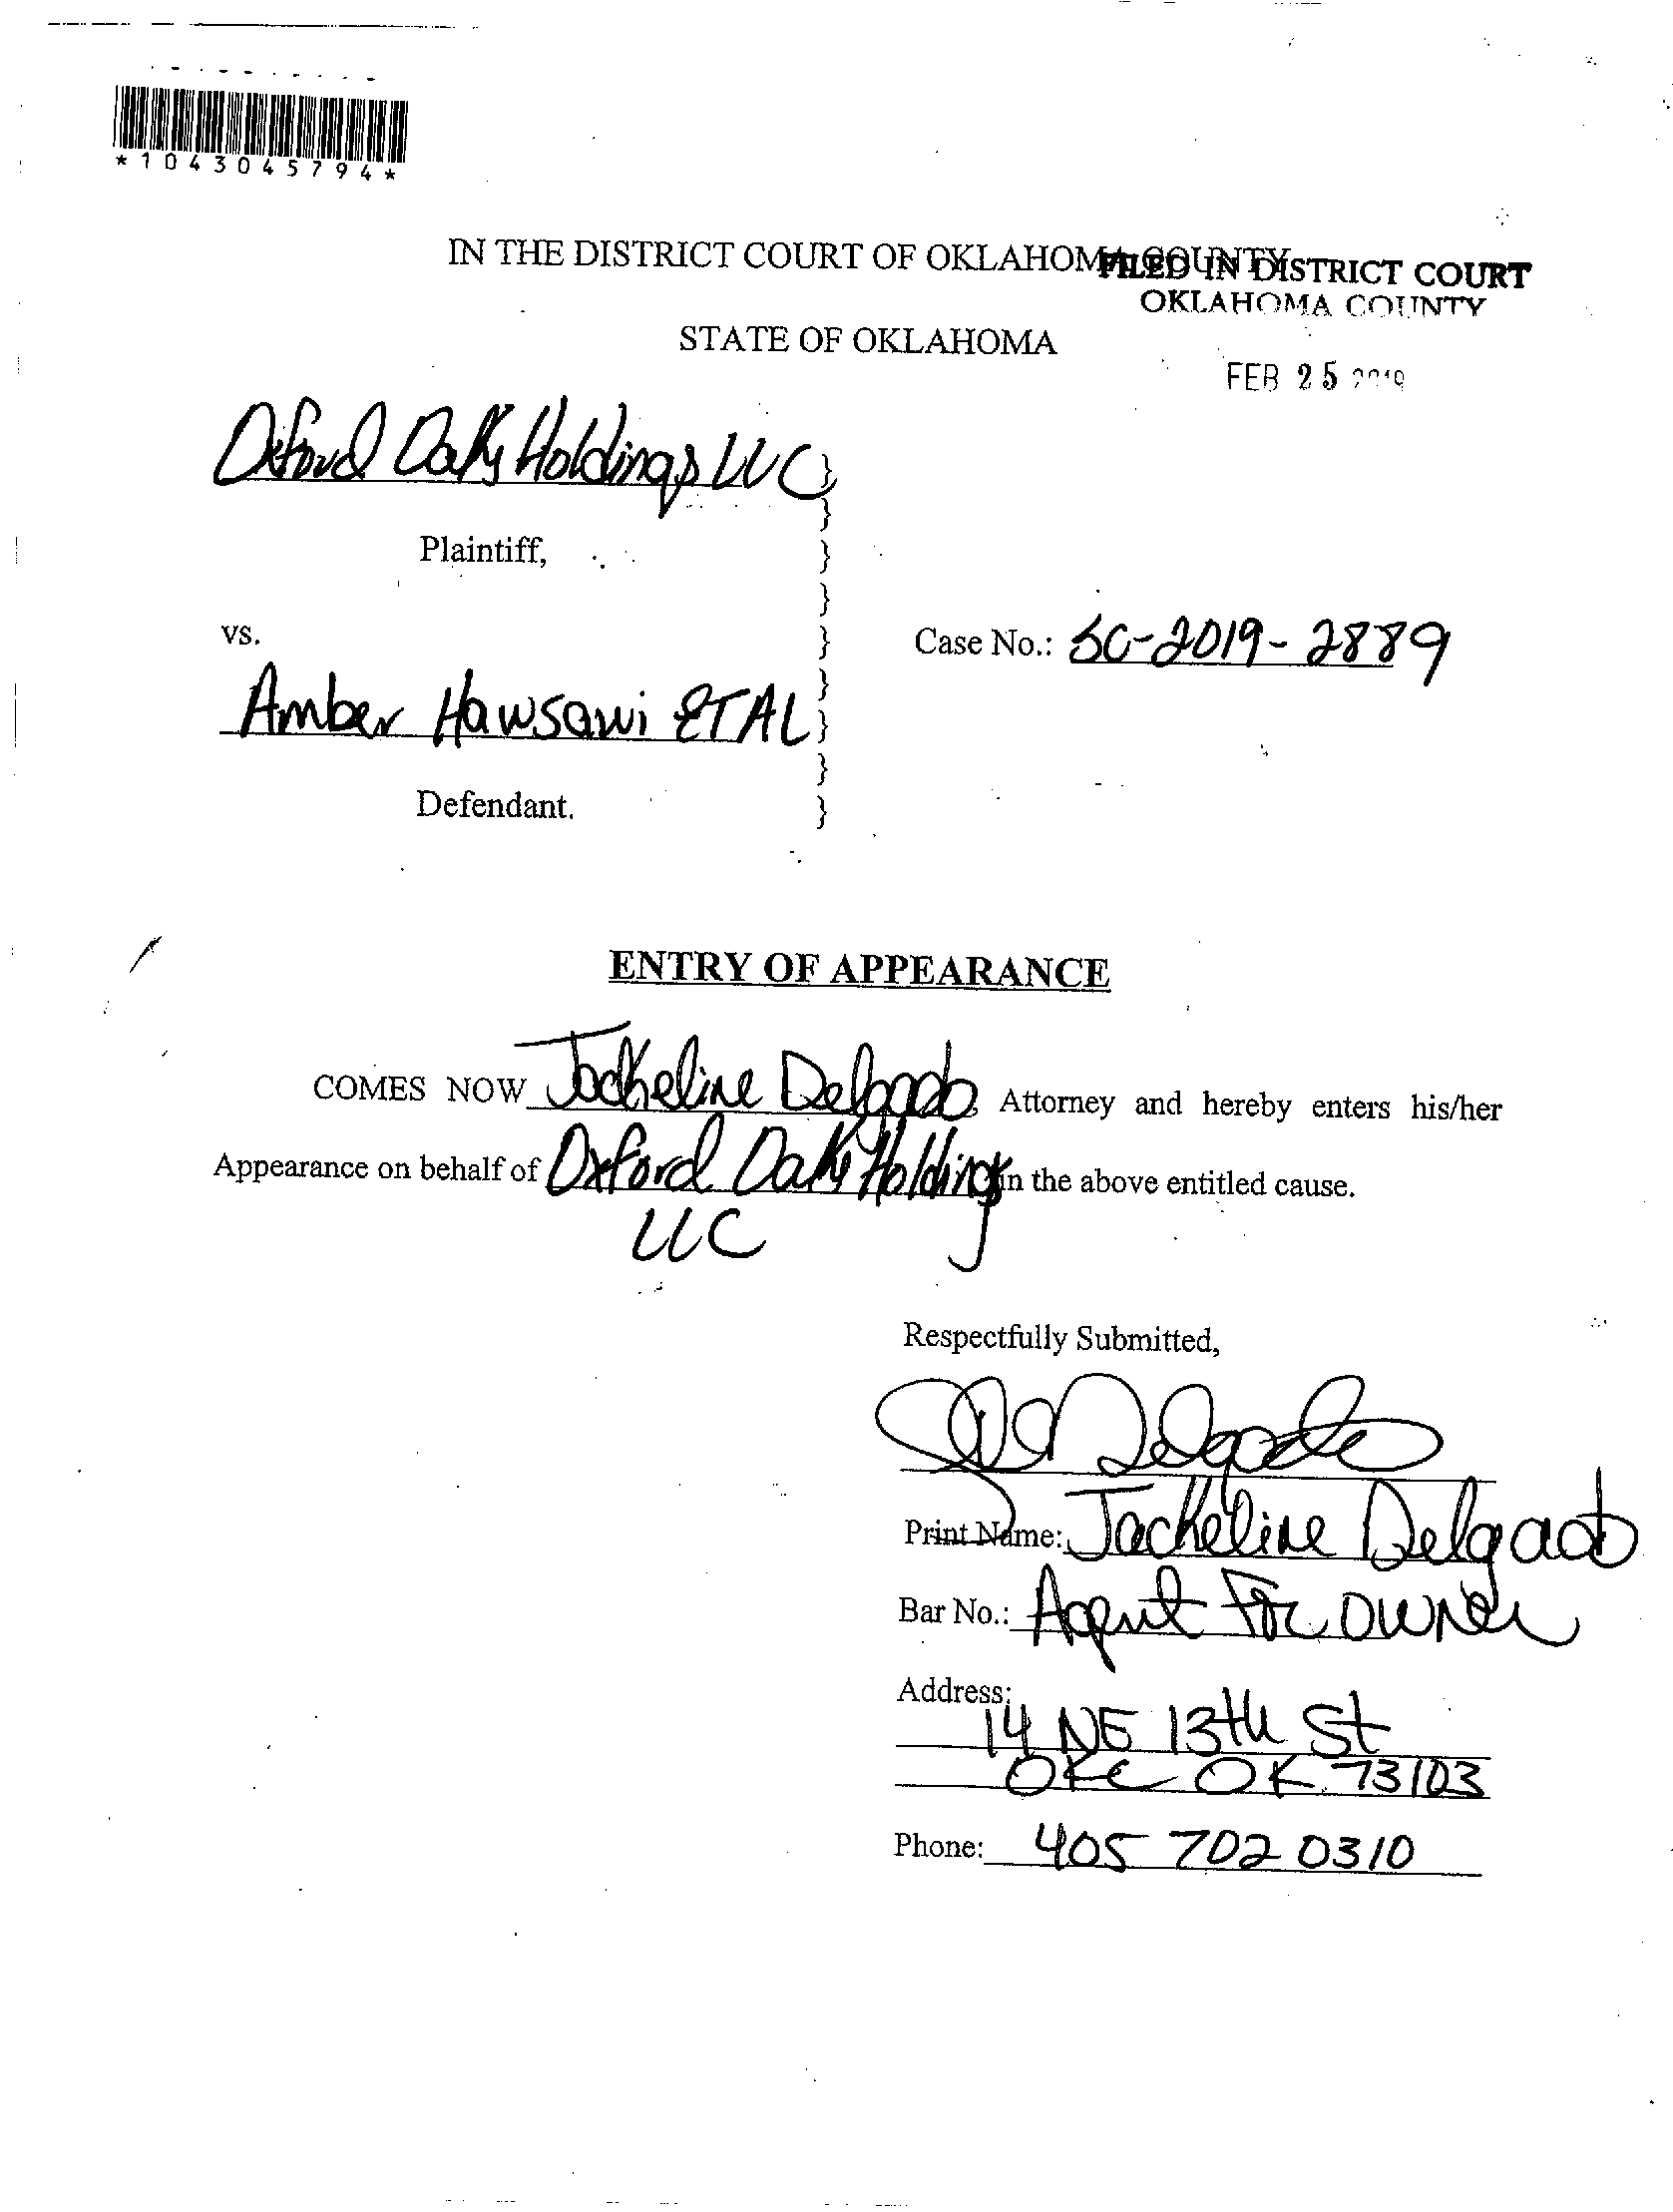 *1043045794*
IN THE DISTRICT COURT OF OKLAHOMA COUNTY
FILED IN DISTRICT COURT
OKLAHOMA COUNTY
STATE OF OKLAHOMA
FEB 25 2019
Oxford Oaks Holdings LLC }
}
Plaintiff, }
}
vs. }
Case No.: SC-2019-2889
}
Amber Hawsawi ETAL }
}
Defendant. }
ENTRY OF APPEARANCE
COMES NOW Jackeline Delgado, Attorney and hereby enters his/her
Appearance on behalf of Oxford Oaks Holdings in the above entitled cause.
LLC
Respectfully Submitted,
Print Name: Jackeline Delgado
Bar No.: Agent For Owner
Address:
14 NE 13th St
OKC OK 73103
Phone: 405 702 0310